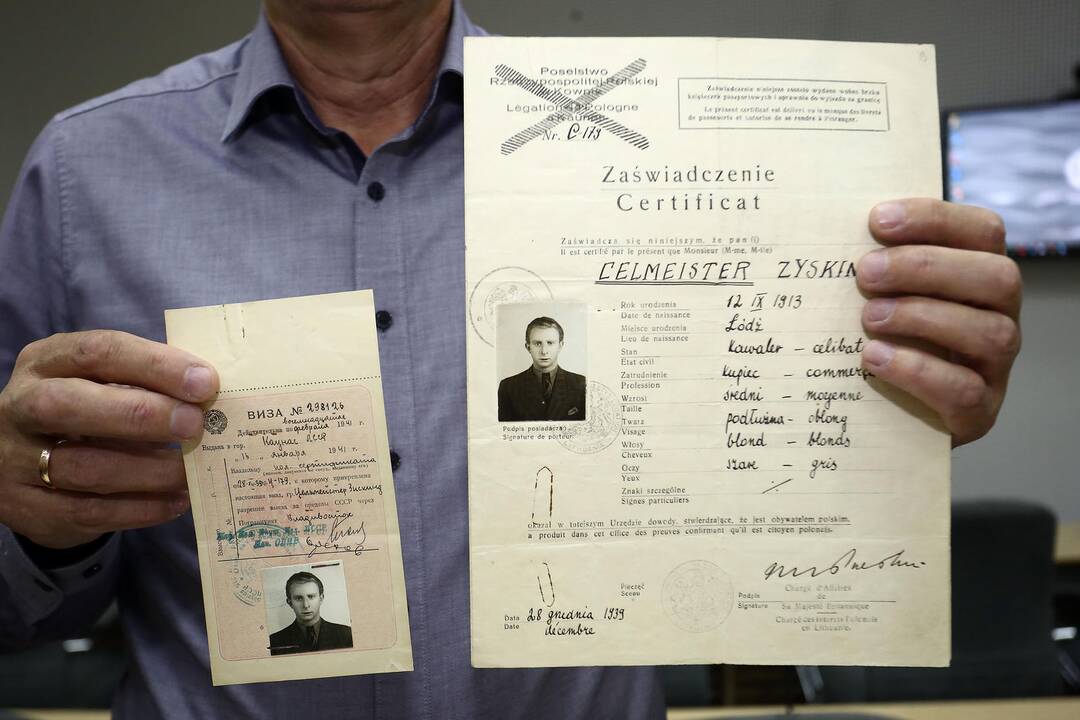 Poselstwo
Rzeczypospolitej Polskiej
w Kownie
Légation de Pologne
à Kaunas
Nr. C 179
Zaświadczenie niniejsze zostało wydane wobec braku
książeczek paszportowych i uprawnia do wyjazdu za granicę
Le présent certificat est délivré vu le manque des livrets
de passeports et autorise de se rendre à l'étranger.
Zaświadczenie
Certificat
Zaświadcza się niniejszym, że pan (i)
Il est certifié par le présent que Monsieur (M-me, M-lle)
CELMEISTER ZYSKIN
Rok urodzenia
Date de naissance
12 IX 1913
Miejsce urodzenia
Lieu de naissance
Łódź
Stan
Etat civil
Kawaler – célibat
Zatrudnienie
Profession
kupiec – commerç
Wzrost
Taille
średni – moyenne
Twarz
Visage
podłużna – oblong
Włosy
Cheveux
blond – blonds
Oczy
Yeux
szare – gris
Znaki szczególne
Signes particuliers
Podpis posiadacza
Signature de porteur
okazał w tutejszym Urzędzie dowody, stwierdzające, że jest obywatelem polskim.
a produit dans cet office des preuves confirmant qu'il est citoyen polonais.
Pieczęć
Sceau
Podpis
Signature
Chargé d'Affaires
de
Sa Majesté Britannique
Chargé des Intérêts Polonais
en Lithuanie.
Data
Date
28 grudnia 1939
décembre
ВИЗА № 298126
Действительна по
восемнадцатое
февраля 1941 г.
Выдана в гор. Каунас ЛССР
января 1941 г.
Владельцу пол. сертификата
к которому прикреплена
настоящая виза, гр. Цельмейстер Зискинд
разрешен выезд за пределы СССР через
Погранпункт Владивосток